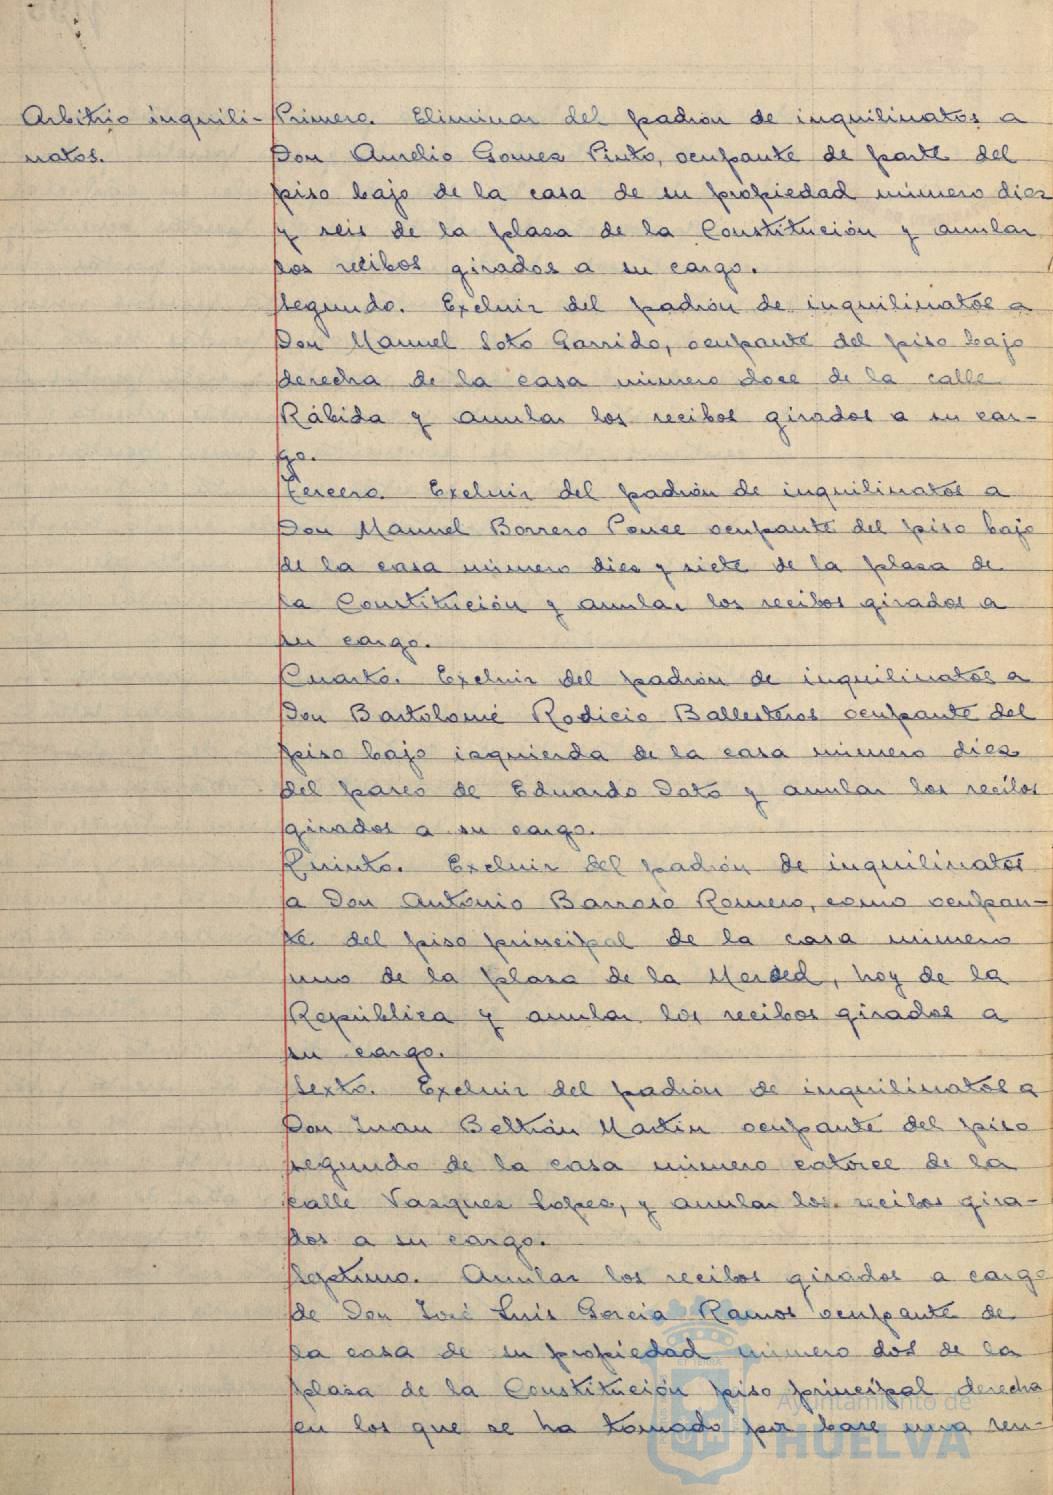 Arbitrio inquili-
natos.
Primero. Eliminar del padrón de inquilinatos a
Don Aurelio Gomez Pinto, ocupante de parte del
piso bajo de la casa de su propiedad número diez
y seis de la plaza de la Constitución y anular
los recibos girados a su cargo.
Segundo. Excluir del padrón de inquilinatos a
Don Manuel Soto Garrido, ocupante del piso bajo
derecha de la casa número doce de la calle
Rábida y anular los recibos girados a su car-
go.
Tercero. Excluir del padrón de inquilinatos a
Don Manuel Borrero Ponce ocupante del piso bajo
de la casa número diez y siete de la plaza de
la Constitución y anular los recibos girados a
su cargo.
Cuarto. Excluir del padrón de inquilinatos a
Don Bartolomé Rodicio Ballesteros ocupante del
piso bajo izquierda de la casa número diez
del paseo de Eduardo Dato y anular los recibos
girados a su cargo.
Quinto. Excluir del padrón de inquilinatos
a Don Antonio Barroso Romero, como ocupan-
te del piso principal de la casa número
uno de la plaza de la Merced, hoy de la
República y anular los recibos girados a
su cargo.
Sexto. Excluir del padrón de inquilinatos a
Don Juan Beltrán Martín ocupante del piso
segundo de la casa número catorce de la
calle Vazquez Lopez, y anular los recibos gira-
dos a su cargo.
Septimo. Anular los recibos girados a cargo
de Don José Luis Garcia Ramos ocupante de
la casa de su propiedad número dos de la
plaza de la Constitución piso principal derecha
en los que se ha tomado por base una ren-
Ayuntamiento de
HUELVA